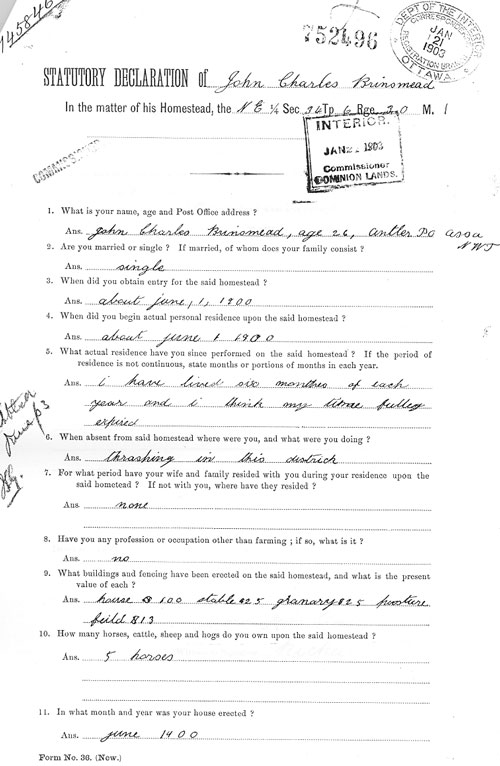 145846
752496
DEPT OF THE INTERIOR
CORRESPONDENCE
REGISTRATION BRANCH
JAN
21
1903
OTTAWA
STATUTORY DECLARATION of John Charles Brinsmead
In the matter of his Homestead, the N E ¼ Sec 24 Tp 6 Rge 30 M. 1
INTERIOR.
JAN 2 1903
Commissioner
DOMINION LANDS.
COMMISSIONER
1. What is your name, age and Post Office address ?
Ans. John Charles Brinsmead, age 26, antler PO assa
NWT
2. Are you married or single ? If married, of whom does your family consist ?
Ans. single
3. When did you obtain entry for the said homestead ?
Ans. about june, 1, 1900
4. When did you begin actual personal residence upon the said homestead ?
Ans. about june 1 1900
5. What actual residence have you since performed on the said homestead ? If the period of
residence is not continuous, state months or portions of months in each year.
Ans. i have lived six monthes of each
year and i think my time fulley
expired
6. When absent from said homestead where were you, and what were you doing ?
Ans. thrashing in this districh
7. For what period have your wife and family resided with you during your residence upon the
said homestead ? If not with you, where have they resided ?
Ans. none
8. Have you any profession or occupation other than farming ; if so, what is it ?
Ans. no
9. What buildings and fencing have been erected on the said homestead, and what is the present
value of each ?
Ans. house $100 stable $25 granary $25 pasture
feild $13
10. How many horses, cattle, sheep and hogs do you own upon the said homestead ?
Ans. 5 horses
11. In what month and year was your house erected ?
Ans. june 1900
Form No. 36. (New.)